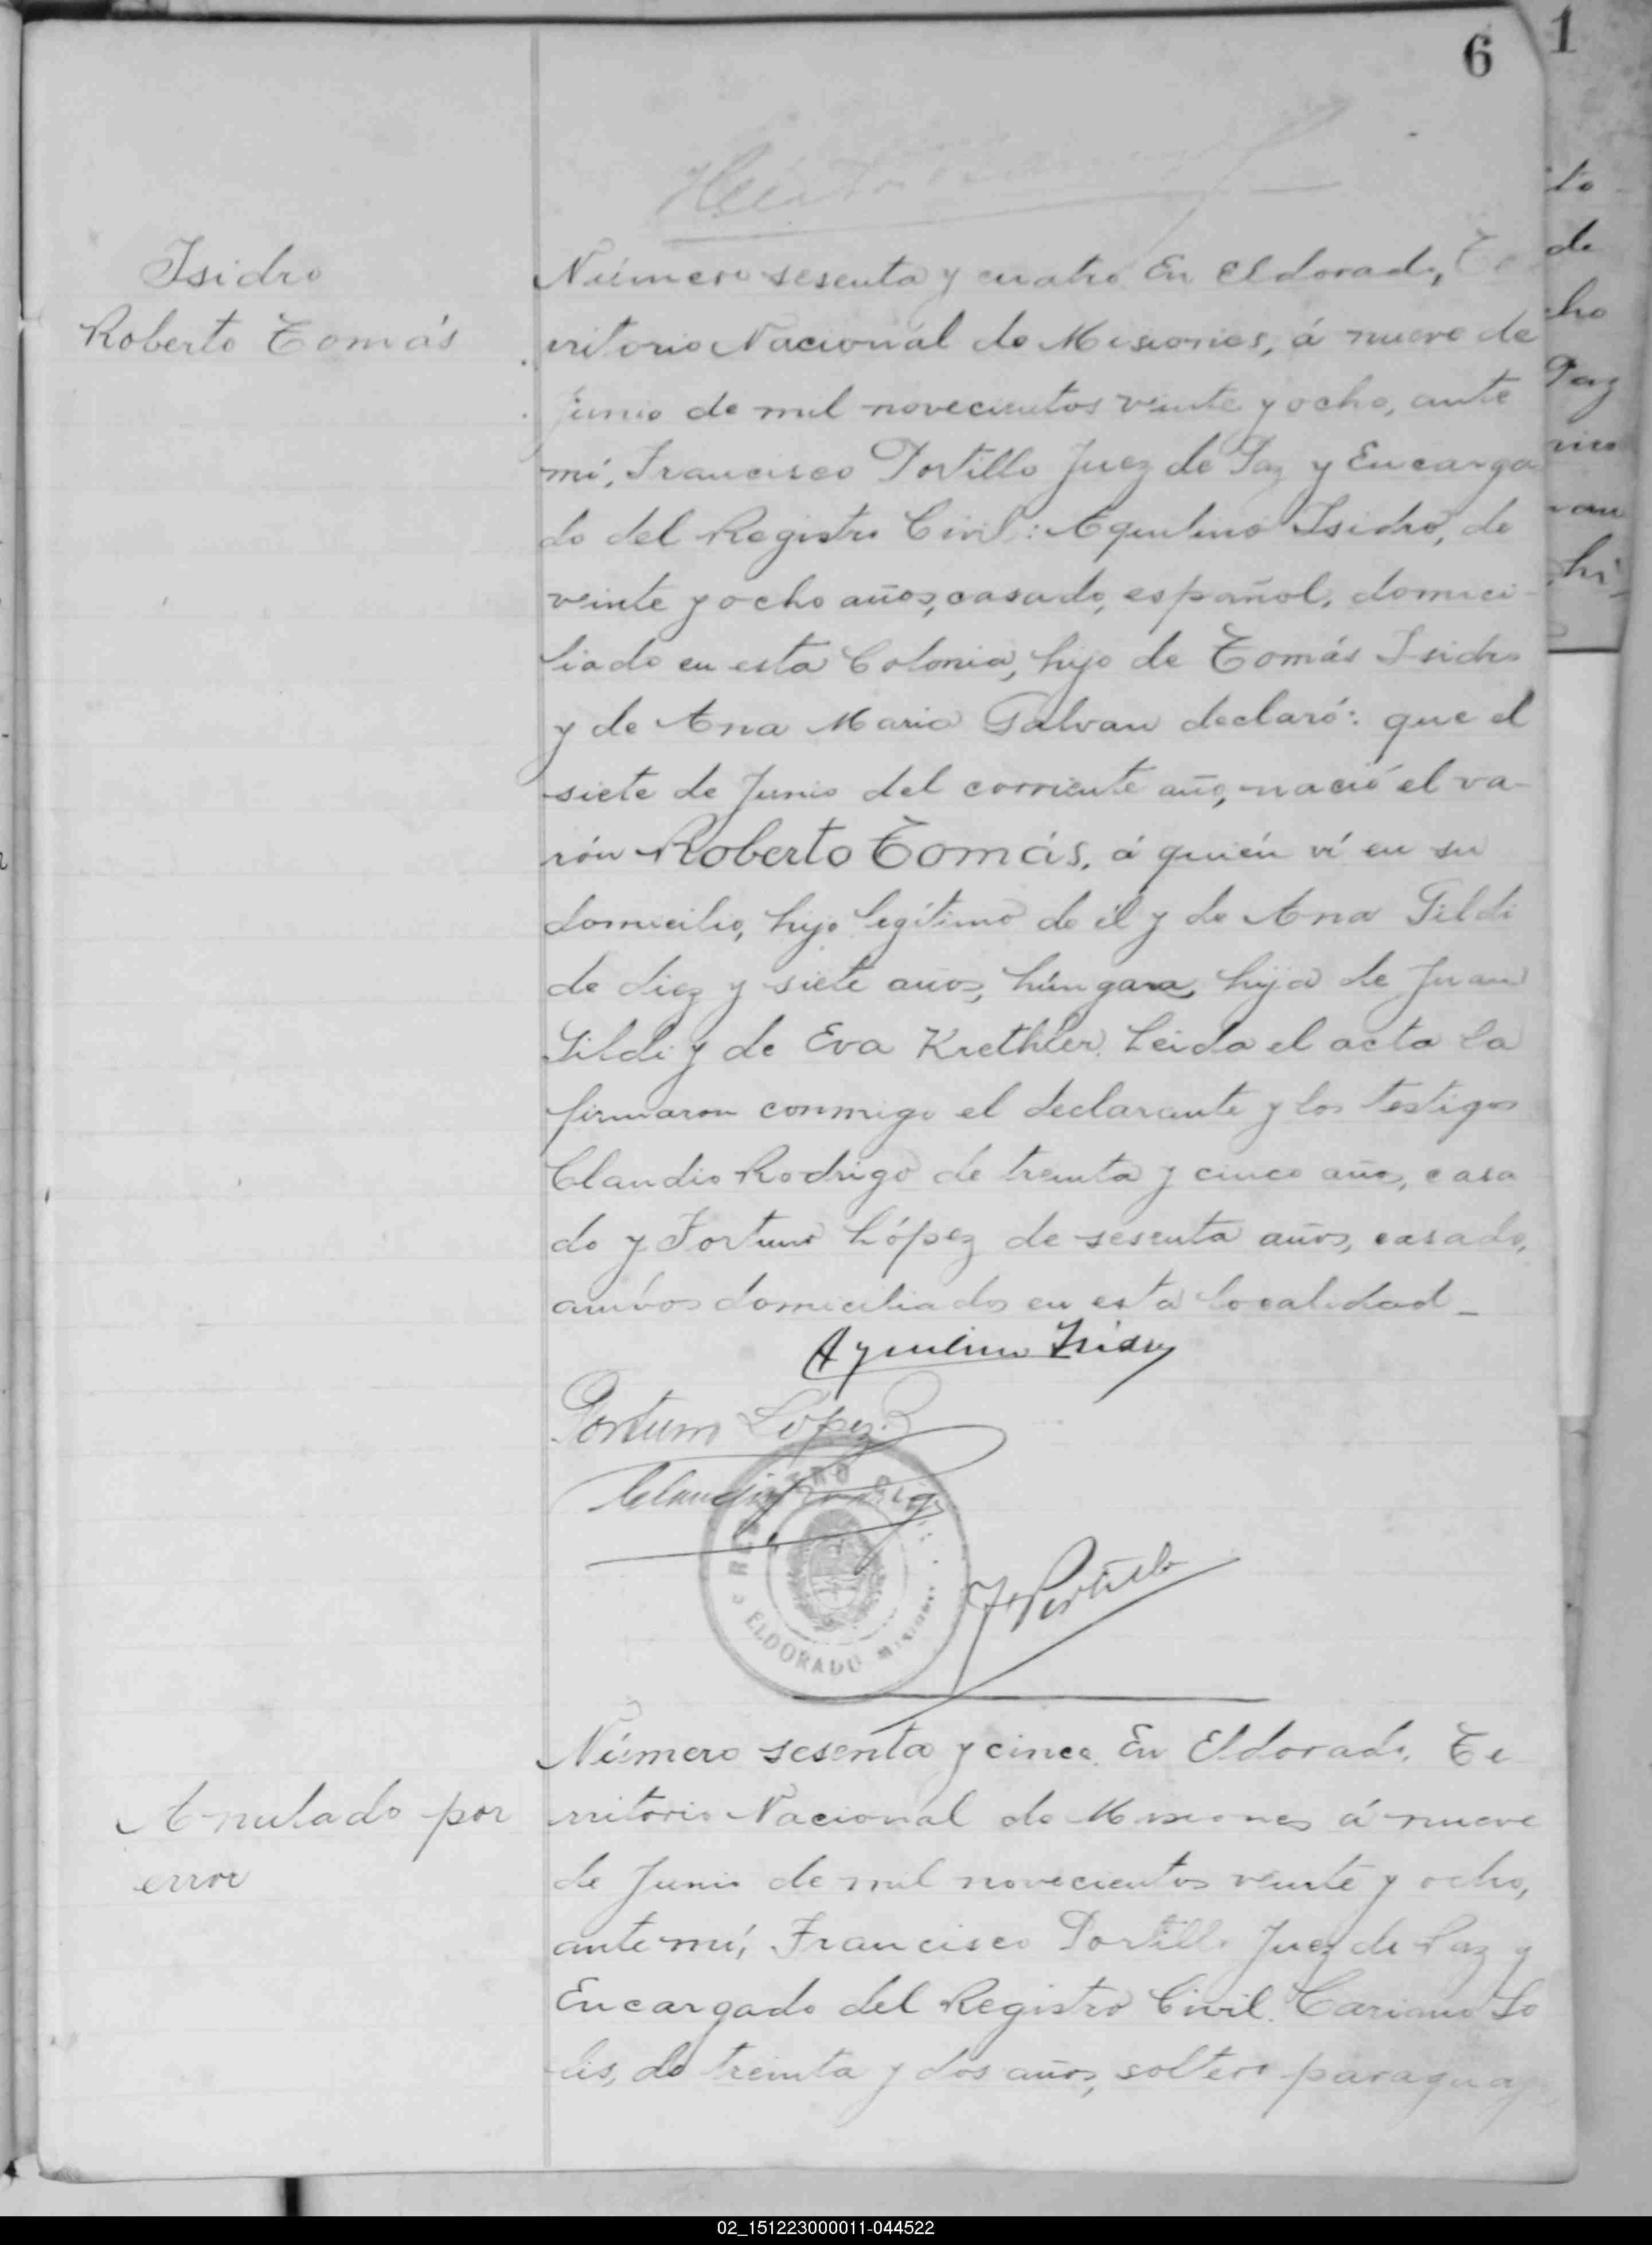 6
1
Isidro
Roberto Tomás
Número sesenta y cuatro En Eldorado, Te
rritorio Nacional de Misiones, á nueve de
Junio de mil novecientos veinte y ocho, ante
mí, Francisco Portillo Juez de Paz y Encarga
do del Registro Civil: Aquilino Isidro, de
veinte y ocho años, casado, español, domici-
liado en esta Colonia, hijo de Tomás Isidro
y de Ana Maria Galvan declaró: que el
siete de Junio del corriente año, nació el va-
rón Roberto Tomás, á quién ví en su
domicilio, hijo legítimo de él y de Ana Gildi
de diez y siete años, húngara, hija de Juan
Gildi y de Eva Krethler. Leida el acta la
firmaron conmigo el declarante y los testigos
Claudio Rodrigo de treinta y cinco años, casa
do y Fortuno López de sesenta años, casado,
ambos domiciliados en esta localidad_
Aquilino Isidro
Fortuno López
Claudio Rodrigo
REGISTRO CIVIL
ELDORADO Misiones
F. Portillo
Anulado por
error
Número sesenta y cinco. En Eldorado, Te
rritorio Nacional de Misiones á nueve
de Junio de mil novecientos veinte y ocho,
ante mí, Francisco Portillo Juez de Paz y
Encargado del Registro Civil. Cariano So
lis, de treinta y dos años, soltero paraguay
to
de
cho
Paz
van
hi-
02_151223000011-044522